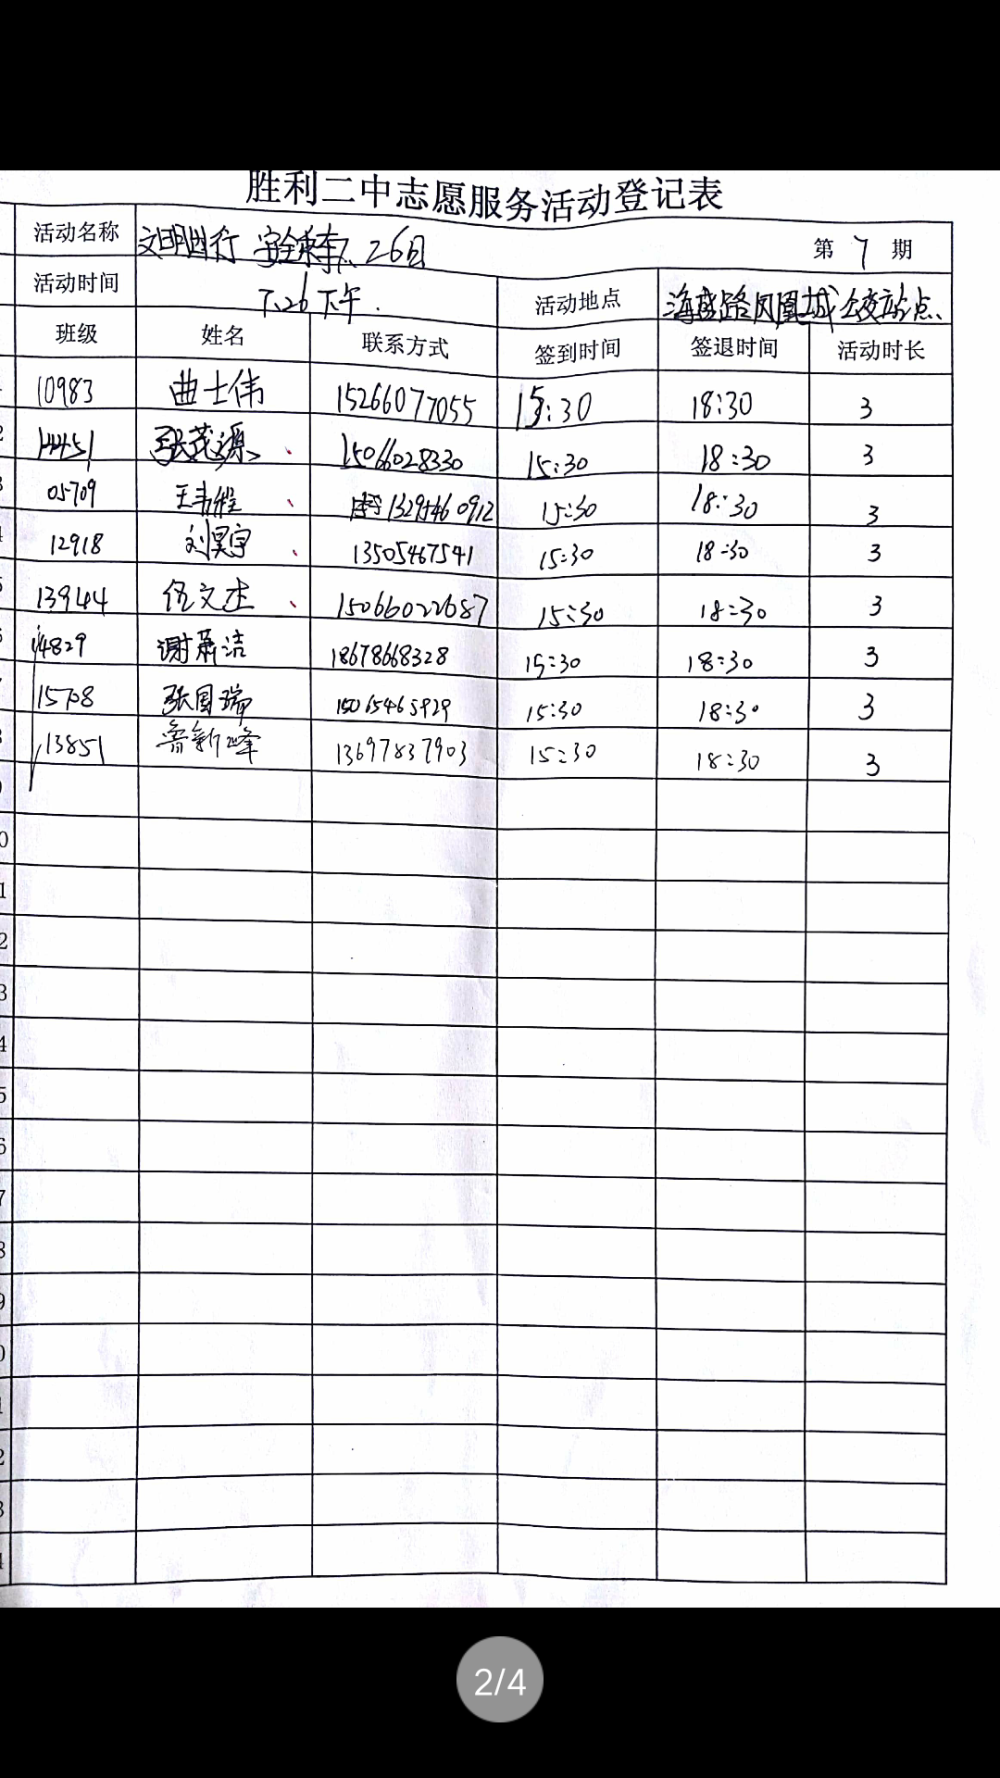 胜利二中志愿服务活动登记表
活动名称 文明出行 安全乘车 7.26日 第 7 期
活动时间 7.26下午. 活动地点 海盛路凤凰城公交站点
班级 姓名 联系方式 签到时间 签退时间 活动时长
10983 曲士伟 15266077055 15:30 18:30 3
14451 张茂源 15066028330 15:30 18:30 3
05709 王韦程 13295460912 15:30 18:30 3
12918 刘昊宇 13505467541 15:30 18:30 3
13944 伍文杰 15066022687 15:30 18:30 3
14829 谢萧洁 18678668328 15:30 18:30 3
15708 张国瑞 15065465929 15:30 18:30 3
13851 鲁新峰 13697837903 15:30 18:30 3
2/4